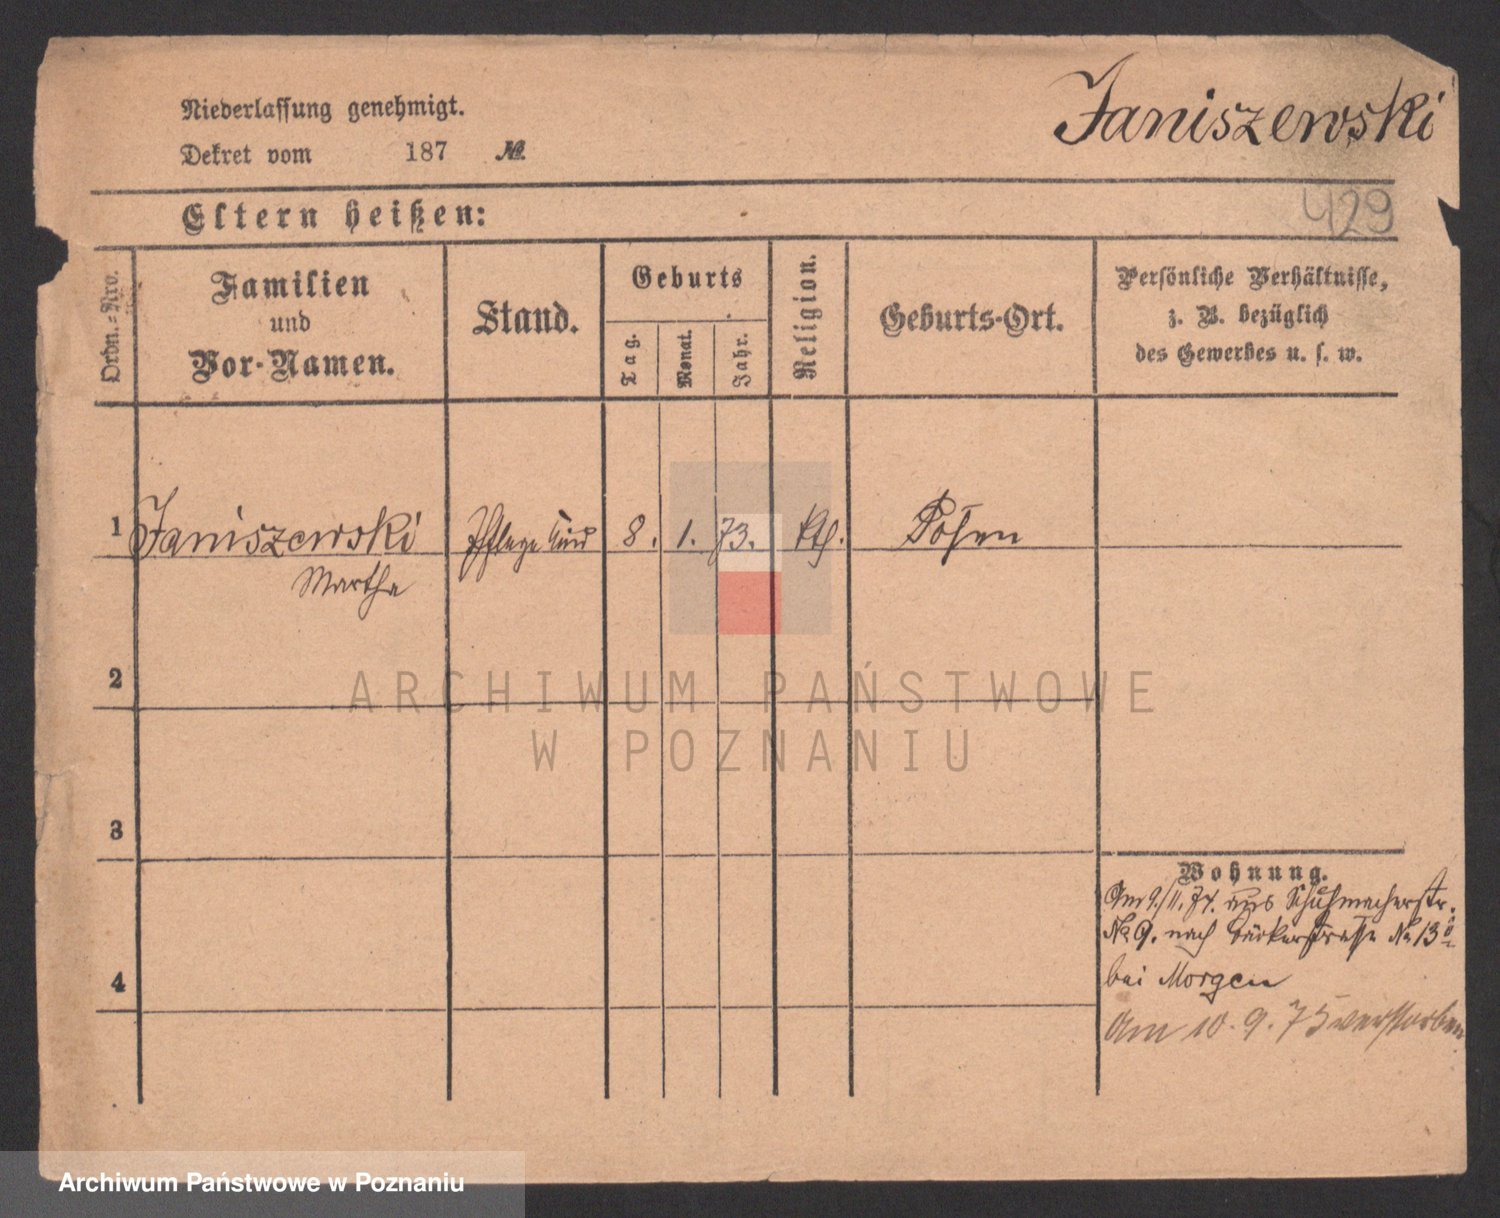 Janiszewski
Niederlassung genehmigt.
Dekret vom 187 №
429
Eltern heißen:
Ordn.-Nro.
Familien
und
Vor-Namen.
Stand.
Geburts
Tag.
Monat.
Jahr.
Religion.
Geburts-Ort.
Persönliche Verhältnisse,
z. B. bezüglich
des Gewerbes u. s. w.
1 Janiszewski Pflegekind 8. 1. 73. kth. Posen
Martha
2
3
4
Wohnung.
Am 9./11. 74. aus Schuhmacherstr.
No 9. nach Bäckerstrasse No 13
bei Morgen
Am 10. 9. 75 verstorben
ARCHIWUM PAŃSTWOWE
W POZNANIU
Archiwum Państwowe w Poznaniu